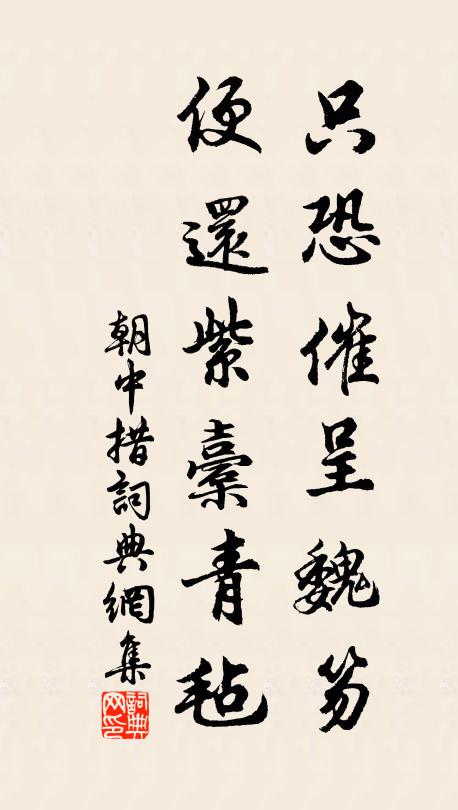 只恐催呈魏笏
便還紫橐青毡
朝中措詞典網集
詞典网印